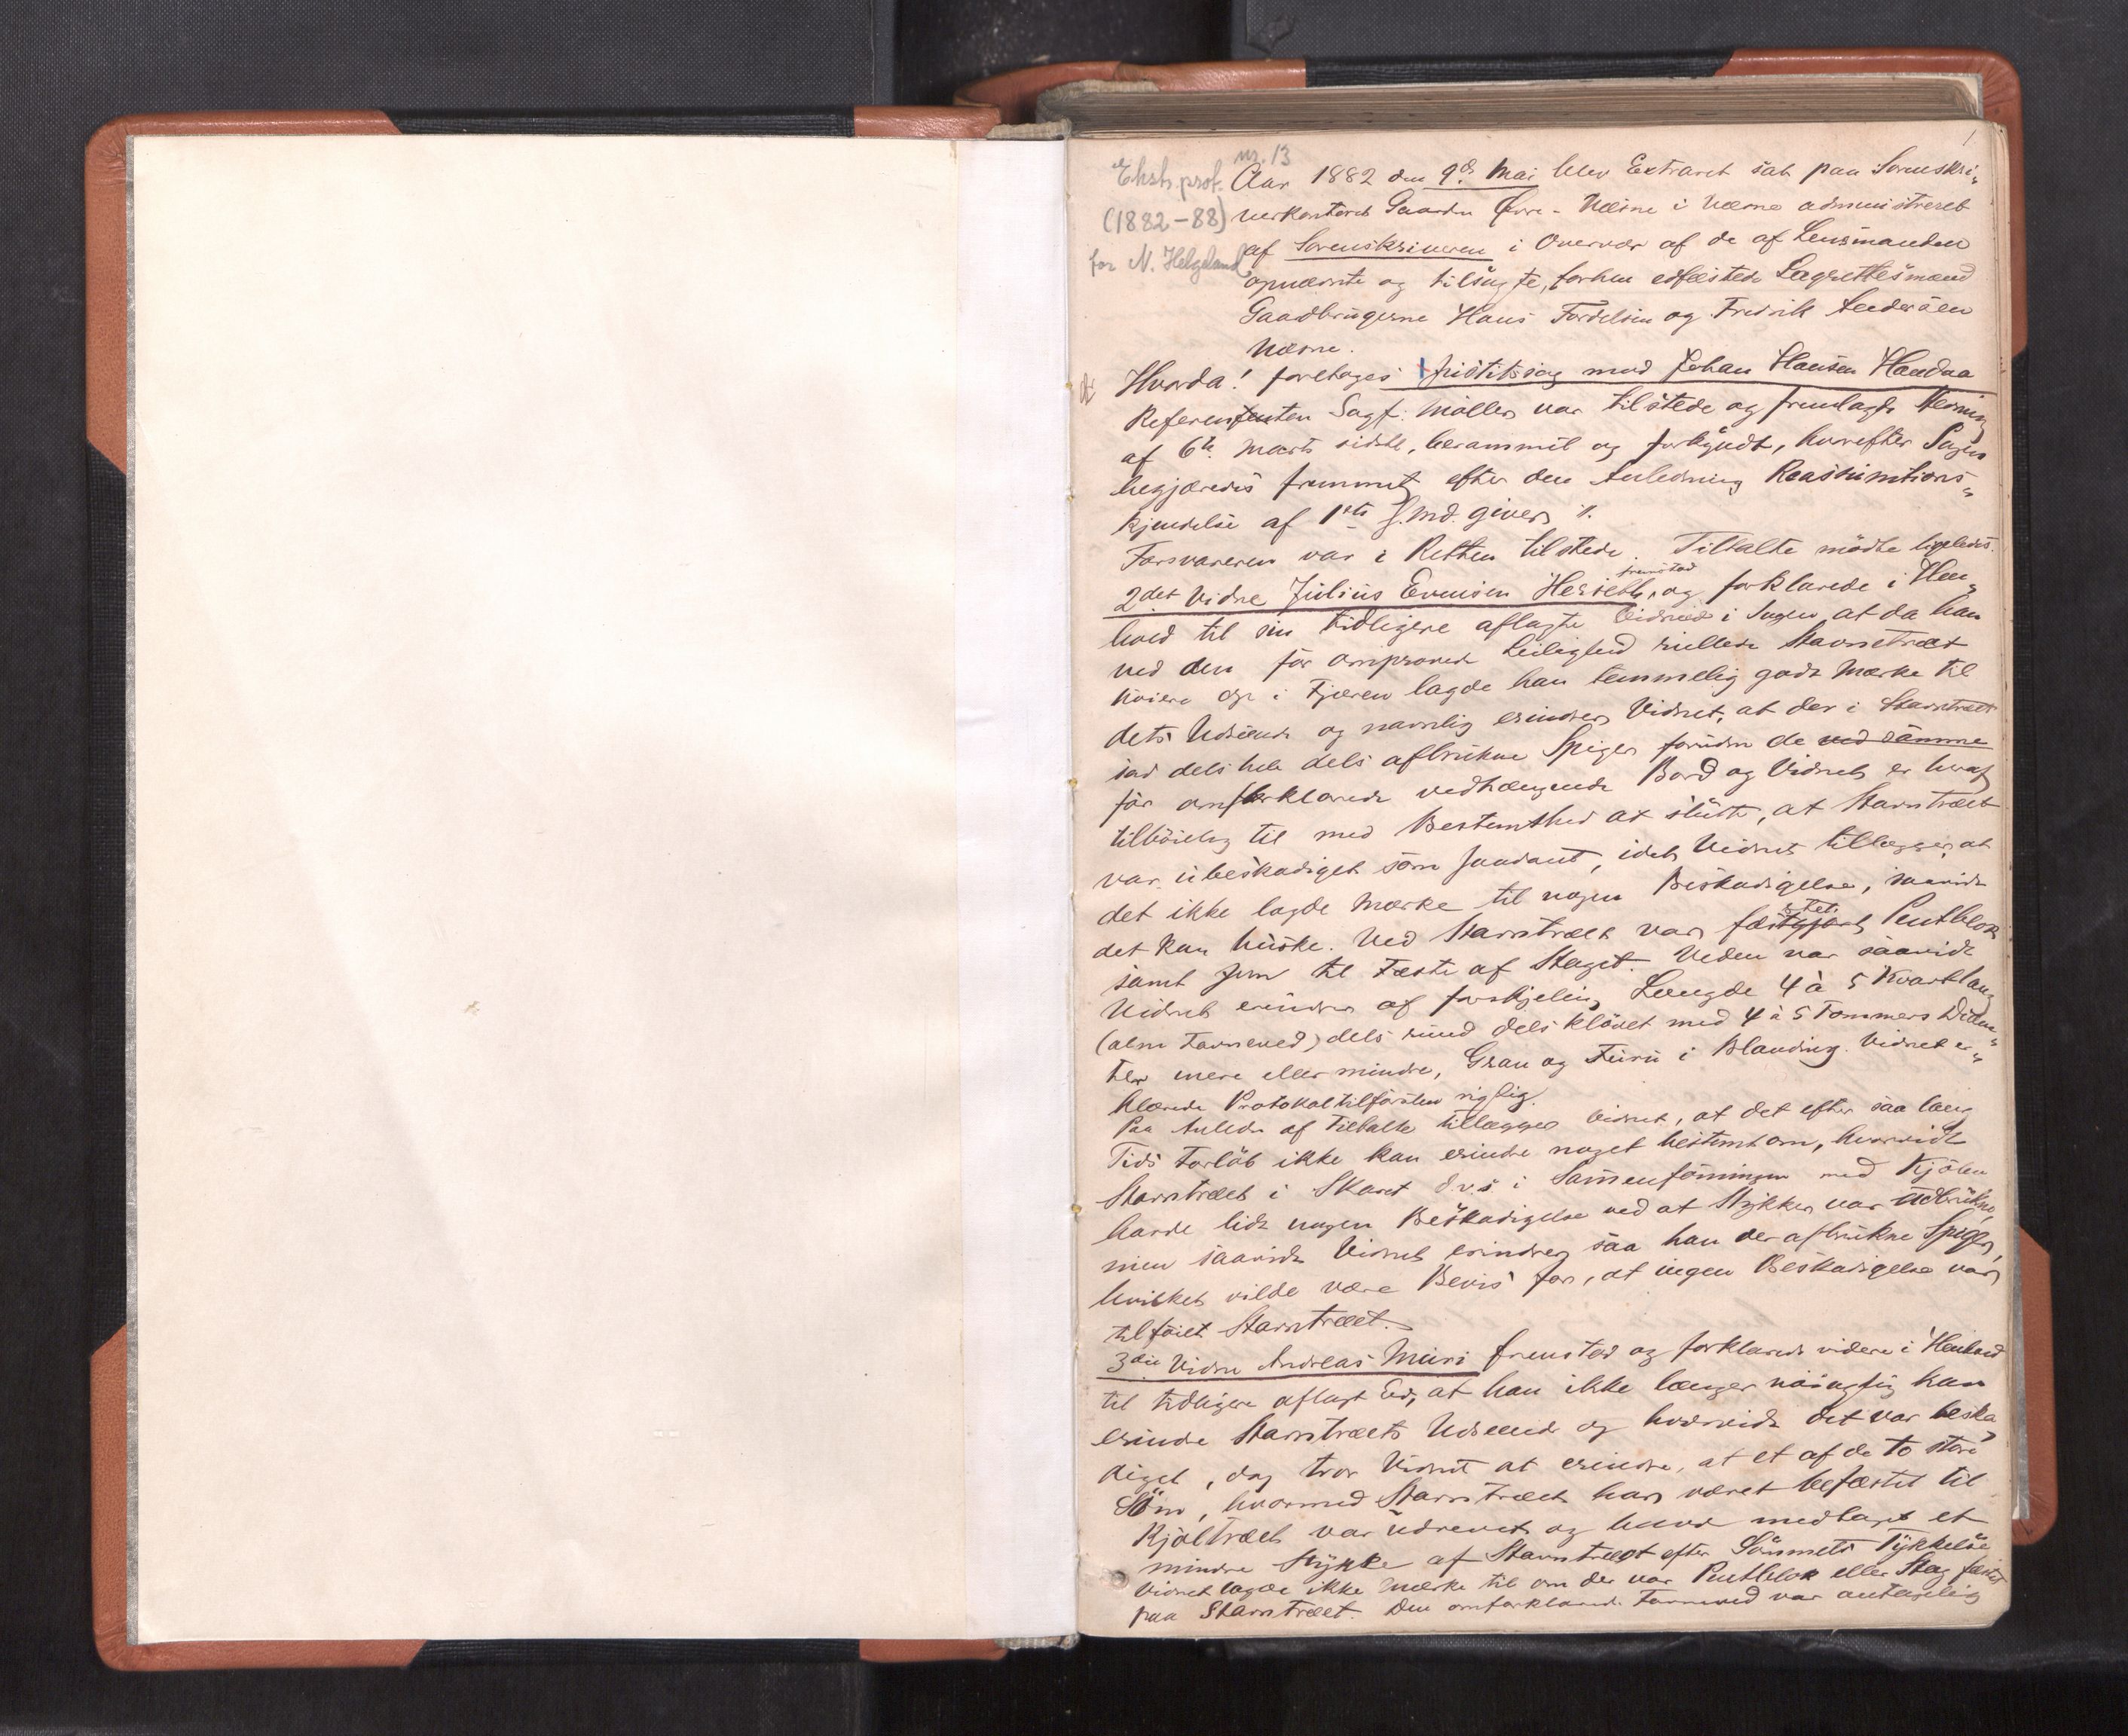 1
nr. 13
Ekstr. prot.
(1882-88)
for N. Helgeland
Aar 1882 den 9de Mai blev Extraret sat paa Sorenskri„
verkontoret Gaarden Øvre-Næsne i Næsne administreret
af Sorenskriveren i Overvær af de af Lensmanden
opnævnte og tilsagte, forhen edfæstede Lagrettesmænd
Gaardbrugerne Hans Fordelsen og Fredrik Andersen
Næsne.
Hvorda! foretoges Justitssag mod Johan Hansen Handaa
Referenten Sagf. Møller var tilstede og fremlagde Stevning
af 6te Marts sidstl. berammet og forkyndt, hvorefter Sagen
begjæredes fremmet efter den Anledning Reassumtions„
kjendelse af 1ste f. Md. giver %.
Forsvareren var i Retten tilstede. Tiltalte mødte ligeledes.
2det Vidne Julius Evensen Herseth, fremstod og forklarede i Hen„
hold til sin tidligere aflagte Vidneed i Sagen at da han
ved den før omprovede Leilighed rullede Stavnstræet
høiere op i Fjæren lagde han temmelig godt Mærke til
dets Udseende og navnlig erindrer Vidnet, at der i Stavntræet
sad dels hele dels afbrukne Spiger foruden de ved samme
før omforklarede vedhængende Bord og Vidnet er heraf
tilbøielig til med Bestemthed at slutte, at Stavntræet
var ubeskadiget som saadant, idet Vidnet tillægger, at
det ikke lagde Mærke til nogen Beskadigelse, saavidt
det kan huske. Ved Stavntræet var fæstet Pentblok
samt Jern til Fæste af Staget. Veden var saavidt
Vidnet erindrer af forskjellig Længde 4 à 5 Kvart lang
(alm Favneved) dels rund dels kløvet med 4 à 5 Tommers Diame„
ter mere eller mindre, Gran og Furu i Blanding. Vidnet er„
klærede Protokoltilførslen rigtig.
Paa Anledn af Tiltalte tillægger Vidnet, at det efter saa lang
Tids Forløb ikke kan erindre noget bestemt om, hvorvidt
Stavntræet i Skaret d.v.s. i Sammenføiningen med Kjølen
havde lidt nogen Beskadigelse ved at Stykker var udbrukne,
men saavidt Vidnet erindrer saa han der afbrukne Spiger,
hvilket vilde være Bevis for, at ingen Beskadigelse var
tilføiet Stavntræet.
3die Vidne Andreas Muri fremstod og forklarede videre i Henhold
til tidligere aflagt Ed, at han ikke længer nøiagtig kan
erindre Stavntræets Udseende og hvorvidt det var beska„
diget, dog tror Vidnet at erindre, at et af de to store
Søm, hvormed Stavntræet har været befæstet til
Kjøltræet var udrevet og havde medtaget et
mindre Stykke af Stavntræet efter Sømmets Tykkelse
Vidnet lagde ikke Mærke til om der var Pentblok eller Stag fæstet
paa Stavntræet. Den omforklarede Favneved var antagelig